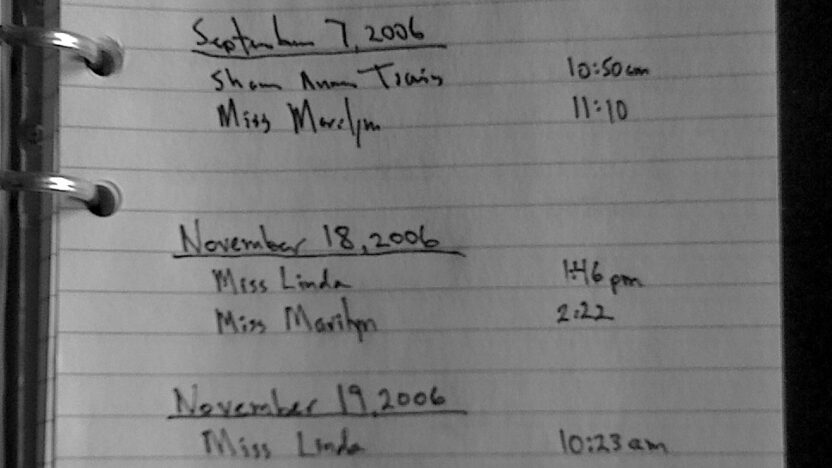 September 7, 2006
Travis 10:50 am
Miss Marilyn 11:10
November 18, 2006
Miss Linda 1:46 pm
Miss Marilyn 2:22
November 19, 2006
Miss Linda 10:23 am